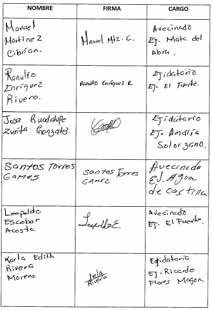 NOMBRE FIRMA CARGO
Manuel
Martinez
Cibrian.
Manuel Mtz. C.
Avecinado
Ej. Mata del
Abra.
Rodolfo
Enriquez
Rivero.
Rodolfo Enriquez R.
Ejidatario
Ej. El Fuerte.
Jose Guadalupe
Zurita Gonzalez.
Ejiditario
Ej. Amalia
Solorzano.
Santos Torres
Gamez
Santos Torres
Gamez
Avecinado
Ej. Agua
de Castilla
Leopoldo
Escobar
Acosta
Leopoldo E.
Avecinado
Ej. El Fuerte.
Karla Edith
Rivera
Moreno
Rivera
Ejidatario
Ej. Ricardo
Flores Magon.